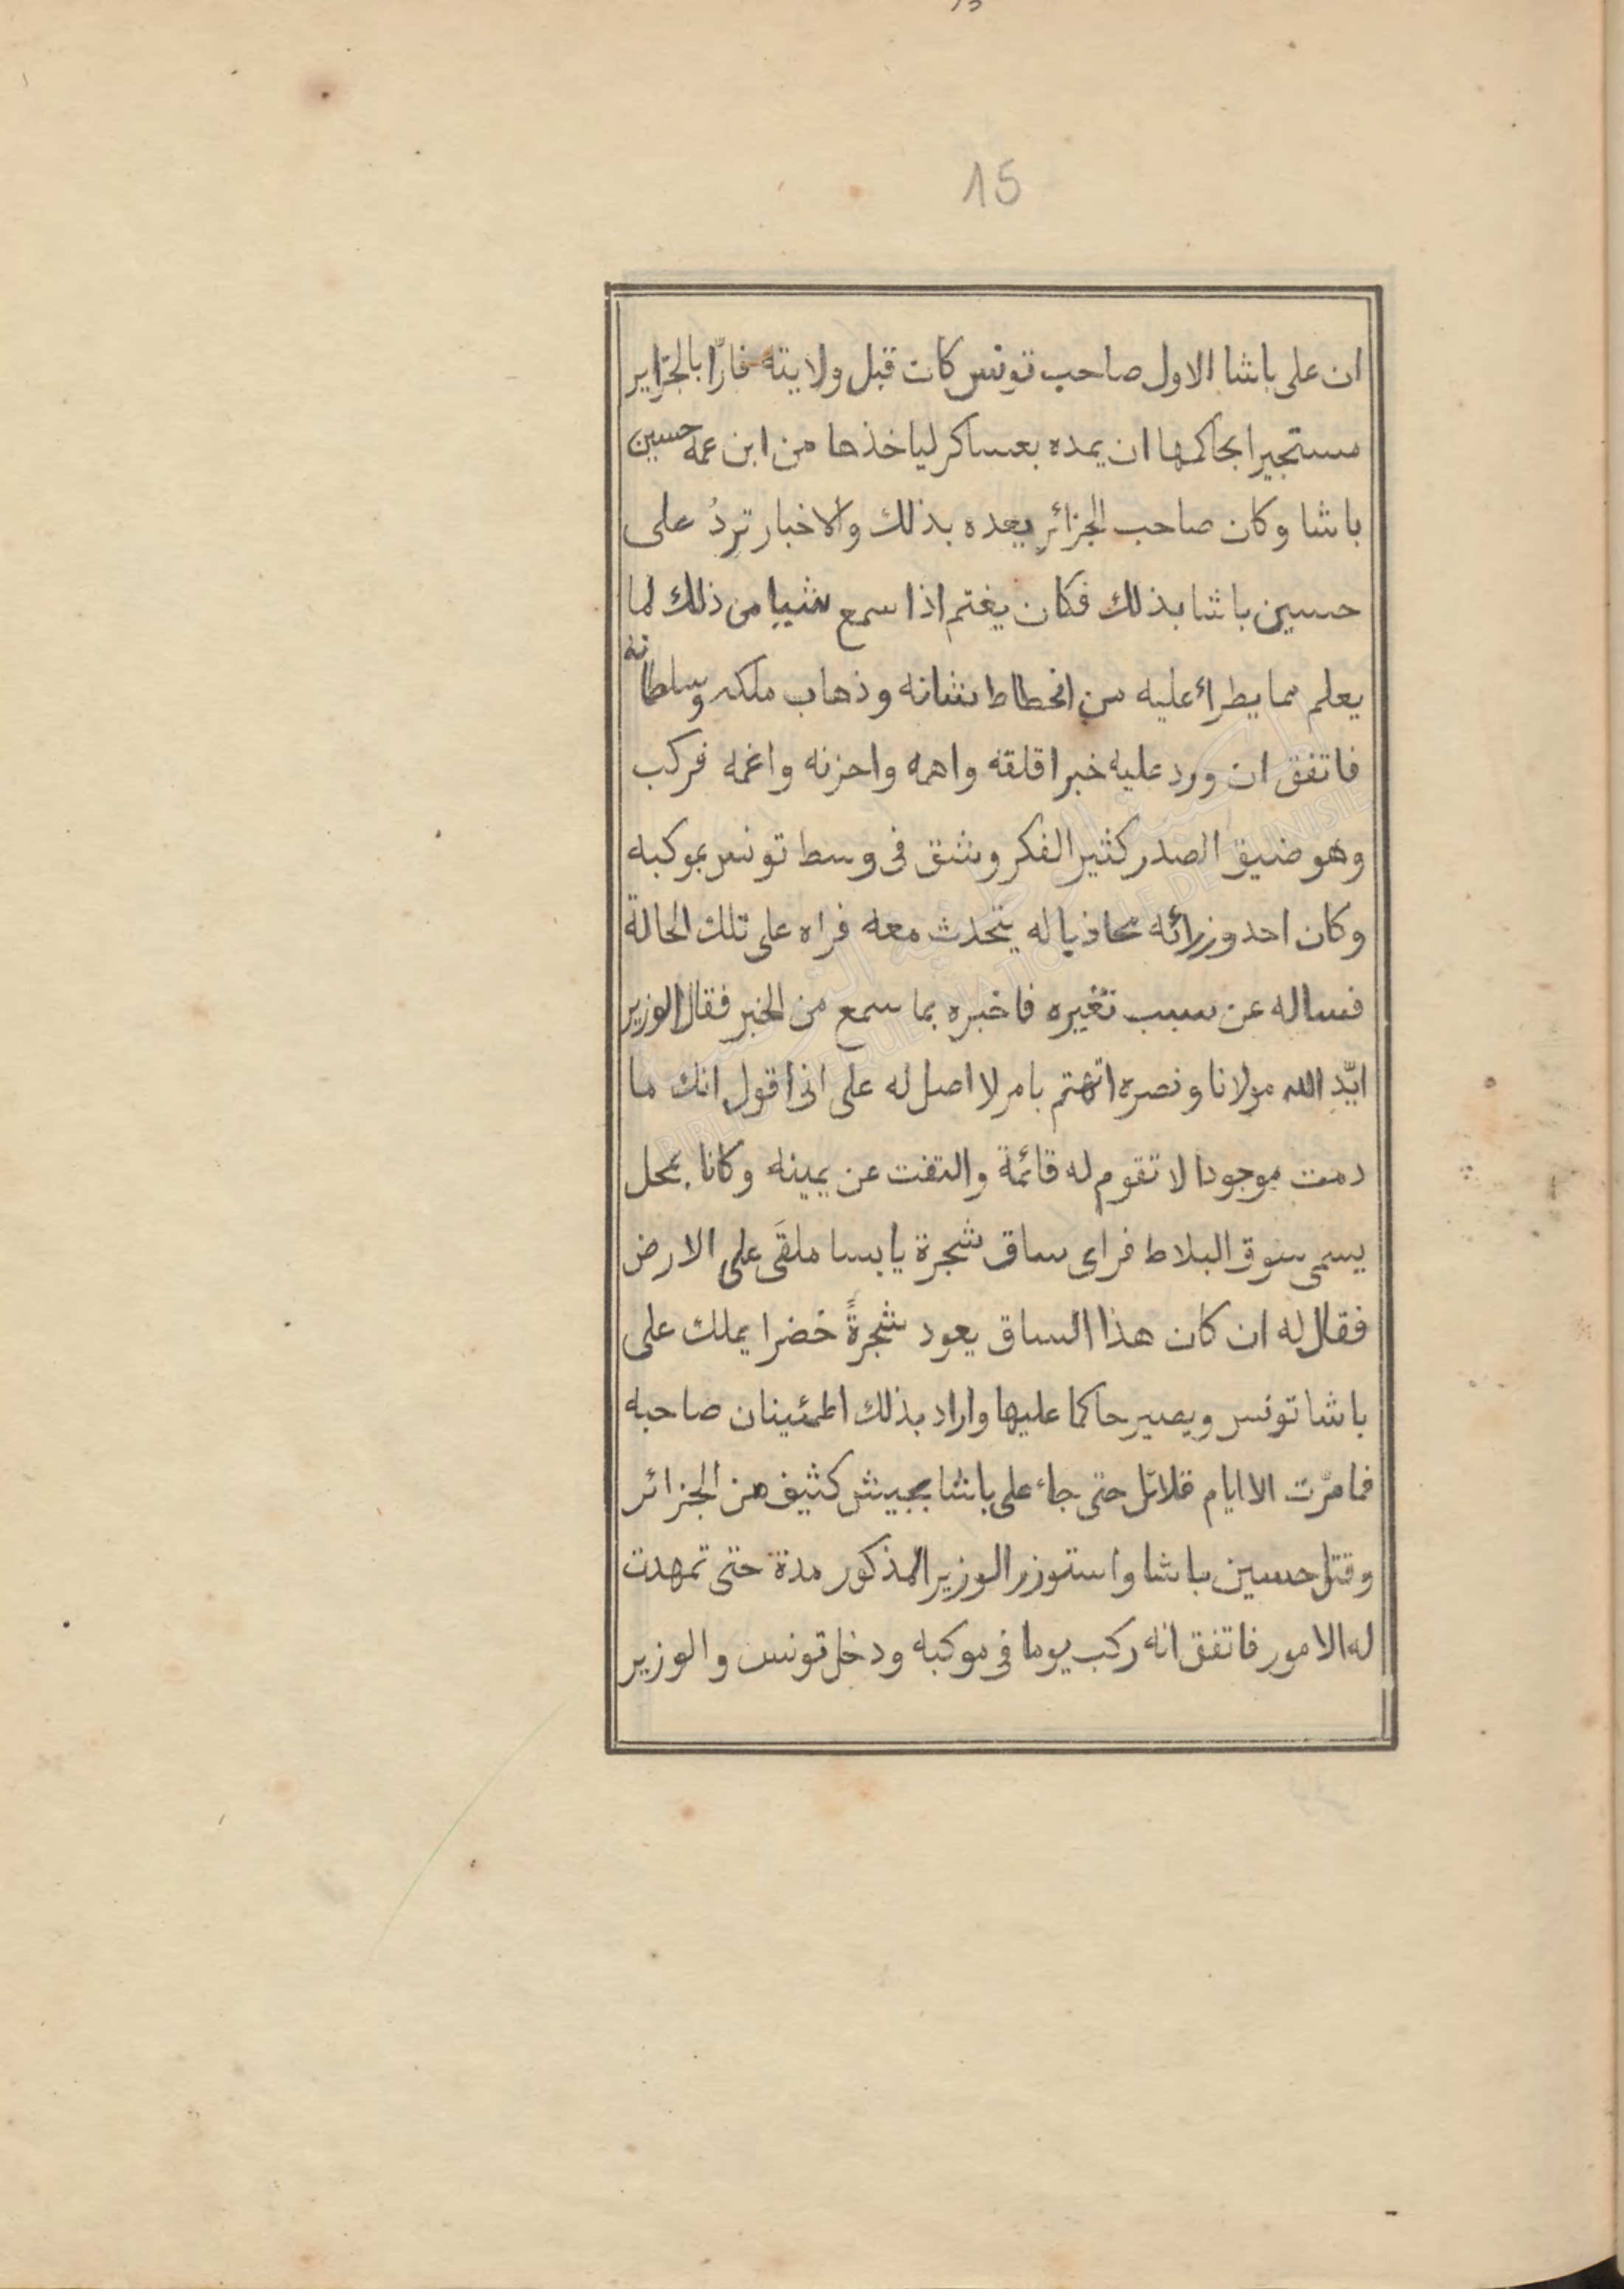 15
ان على باشا الاول صاحب تونس كان قبل ولايته فارّا بالجزاير
مستجيرا بحاكمها ان يمده بعساكر لياخذها من ابن عمه حسين
باشا وكان صاحب الجزائر يعده بذلك والاخبار تردُ على
حسين باشا بذلك فكان يغتم اذا سمع شيا من ذلك لما
يعلم مما يطراء عليه من انحطاط شانه وذهاب ملكه وسلطانه
فاتفق ان ورد عليه خبر اقلقه واهمه واحزنه واغمه فركب
وهو ضيق الصدر كثير الفكر وشق فى وسط تونس بموكبه
وكان احد وزرائه محاذيا له يتحدث معه فراه على تلك الحالة
فساله عن سبب تغيره فاخبره بما سمع من الخبر فقال الوزير
ايّد الله مولانا ونصره اتهتم بامر لا اصل له على انى اقول انك ما
دمت موجودا لا تقوم له قائمة والتفت عن يمينه وكانا بمحل
يسمى سوق البلاط فراى ساق شجرة يابسا ملقَى على الارض
فقال له ان كان هذا الساق يعود شجرةً خضرا يملك على
باشا تونس ويصير حاكما عليها واراد بذلك اطمئينان صاحبه
فما مرّت الا ايام قلائل حتى جاء على باشا بجيش كثيف من الجزائر
وقتل حسين باشا واستوزر الوزير المذكور مدة حتى تمهدت
له الامور فاتفق انه ركب يوما فى موكبه ودخل تونس والوزير